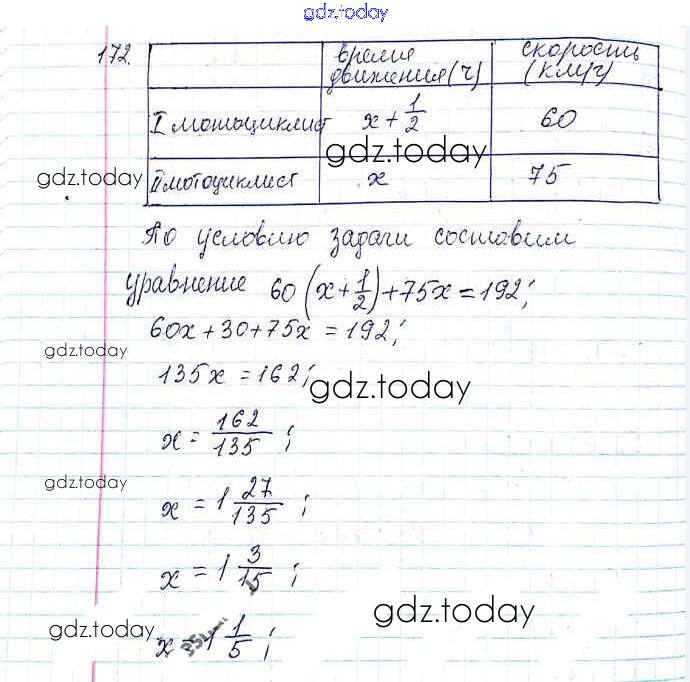 gdz.today
172.
время движения(ч)
скорость (км/ч)
I мотоциклист x + 1/2 60
gdz.today
gdz.today
II мотоциклист x 75
По условию задачи составим
уравнение 60(x + 1/2) + 75x = 192;
60x + 30 + 75x = 192;
gdz.today
135x = 162;
gdz.today
x = 162/135 ;
gdz.today
x = 1 27/135 ;
x = 1 3/15 ;
gdz.today
gdz.today
x = 1 1/5 ;